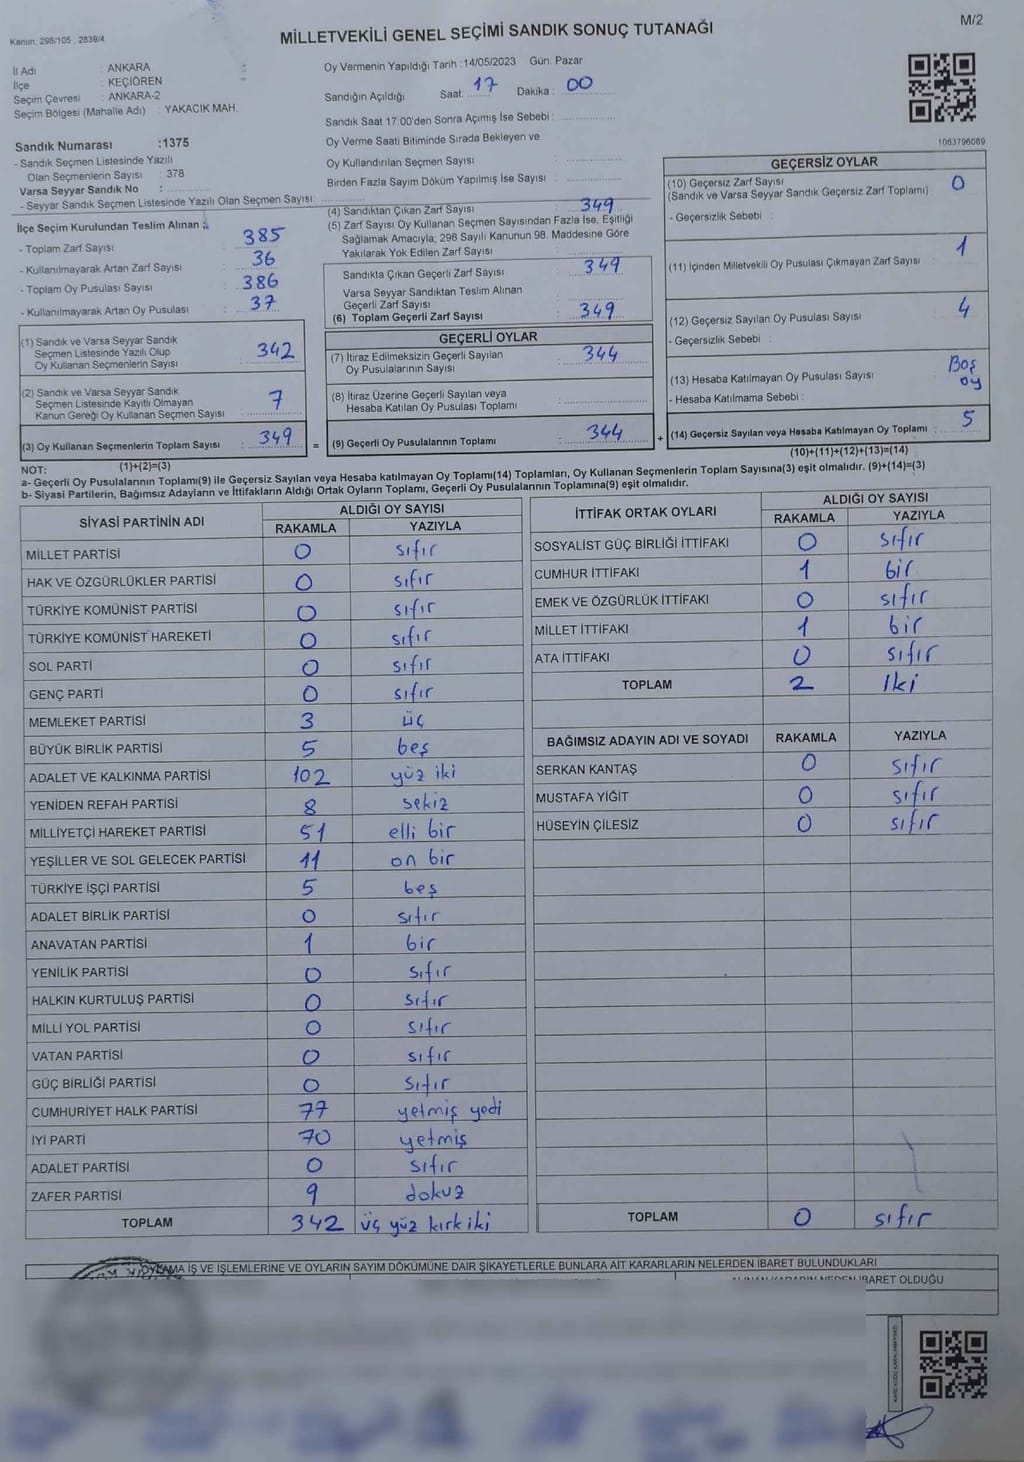 M/2
Kanun, 298/105, 2839/4
MİLLETVEKİLİ GENEL SEÇİMİ SANDIK SONUÇ TUTANAĞI
İl Adı : ANKARA
İlçe : KEÇİÖREN
Seçim Çevresi : ANKARA-2
Seçim Bölgesi (Mahalle Adı) : YAKACIK MAH.
Sandık Numarası :1375
- Sandık Seçmen Listesinde Yazılı
Olan Seçmenlerin Sayısı : 378
Varsa Seyyar Sandık No :
- Seyyar Sandık Seçmen Listesinde Yazılı Olan Seçmen Sayısı:
Oy Vermenin Yapıldığı Tarih :14/05/2023 Gün: Pazar
Sandığın Açıldığı Saat: 17 Dakika : 00
Sandık Saat 17:00'den Sonra Açımış İse Sebebi :
Oy Verme Saati Bitiminde Sırada Bekleyen ve
Oy Kullandırılan Seçmen Sayısı :
Birden Fazla Sayım Döküm Yapılmış İse Sayısı :
1063796069
İlçe Seçim Kurulundan Teslim Alınan :
- Toplam Zarf Sayısı : 385
- Kullanılmayarak Artan Zarf Sayısı : 36
- Toplam Oy Pusulası Sayısı : 386
- Kullanılmayarak Artan Oy Pusulası : 37
(1) Sandık ve Varsa Seyyar Sandık
Seçmen Listesinde Yazılı Olup
Oy Kullanan Seçmenlerin Sayısı : 342
(2) Sandık ve Varsa Seyyar Sandık
Seçmen Listesinde Kayıtlı Olmayan
Kanun Gereği Oy Kullanan Seçmen Sayısı : 7
(3) Oy Kullanan Seçmenlerin Toplam Sayısı : 349 =
(4) Sandıktan Çıkan Zarf Sayısı : 349
(5) Zarf Sayısı Oy Kullanan Seçmen Sayısından Fazla İse, Eşitliği
Sağlamak Amacıyla; 298 Sayılı Kanunun 98. Maddesine Göre
Yakılarak Yok Edilen Zarf Sayısı :
Sandıkta Çıkan Geçerli Zarf Sayısı : 349
Varsa Seyyar Sandıktan Teslim Alınan
Geçerli Zarf Sayısı :
(6) Toplam Geçerli Zarf Sayısı : 349
GEÇERLİ OYLAR
(7) İtiraz Edilmeksizin Geçerli Sayılan
Oy Pusulalarının Sayısı : 344
(8) İtiraz Üzerine Geçerli Sayılan veya
Hesaba Katılan Oy Pusulası Toplamı :
(9) Geçerli Oy Pusulalarının Toplamı : 344 +
GEÇERSİZ OYLAR
(10) Geçersiz Zarf Sayısı : 0
(Sandık ve Varsa Seyyar Sandık Geçersiz Zarf Toplamı)
- Geçersizlik Sebebi :
(11) İçinden Milletvekili Oy Pusulası Çıkmayan Zarf Sayısı : 1
(12) Geçersiz Sayılan Oy Pusulası Sayısı : 4
- Geçersizlik Sebebi :
(13) Hesaba Katılmayan Oy Pusulası Sayısı : Boş
- Hesaba Katılmama Sebebi : oy
(14) Geçersiz Sayılan veya Hesaba Katılmayan Oy Toplamı : 5
NOT: (1)+(2)=(3) (10)+(11)+(12)+(13)=(14)
a- Geçerli Oy Pusulalarının Toplamı(9) ile Geçersiz Sayılan veya Hesaba katılmayan Oy Toplamı(14) Toplamları, Oy Kullanan Seçmenlerin Toplam Sayısına(3) eşit olmalıdır. (9)+(14)=(3)
b- Siyasi Partilerin, Bağımsız Adayların ve İttifakların Aldığı Ortak Oyların Toplamı, Geçerli Oy Pusulalarının Toplamına(9) eşit olmalıdır.
SİYASİ PARTİNİN ADI ALDIĞI OY SAYISI
RAKAMLA YAZIYLA
MİLLET PARTİSİ 0 sıfır
HAK VE ÖZGÜRLÜKLER PARTİSİ 0 sıfır
TÜRKİYE KOMÜNİST PARTİSİ 0 sıfır
TÜRKİYE KOMÜNİST HAREKETİ 0 sıfır
SOL PARTİ 0 sıfır
GENÇ PARTİ 0 sıfır
MEMLEKET PARTİSİ 3 üç
BÜYÜK BİRLİK PARTİSİ 5 beş
ADALET VE KALKINMA PARTİSİ 102 yüz iki
YENİDEN REFAH PARTİSİ 8 sekiz
MİLLİYETÇİ HAREKET PARTİSİ 51 elli bir
YEŞİLLER VE SOL GELECEK PARTİSİ 11 on bir
TÜRKİYE İŞÇİ PARTİSİ 5 beş
ADALET BİRLİK PARTİSİ 0 sıfır
ANAVATAN PARTİSİ 1 bir
YENİLİK PARTİSİ 0 sıfır
HALKIN KURTULUŞ PARTİSİ 0 sıfır
MİLLİ YOL PARTİSİ 0 sıfır
VATAN PARTİSİ 0 sıfır
GÜÇ BİRLİĞİ PARTİSİ 0 sıfır
CUMHURİYET HALK PARTİSİ 77 yetmiş yedi
İYİ PARTİ 70 yetmiş
ADALET PARTİSİ 0 sıfır
ZAFER PARTİSİ 9 dokuz
TOPLAM 342 üç yüz kırk iki
İTTİFAK ORTAK OYLARI ALDIĞI OY SAYISI
RAKAMLA YAZIYLA
SOSYALİST GÜÇ BİRLİĞİ İTTİFAKI 0 sıfır
CUMHUR İTTİFAKI 1 bir
EMEK VE ÖZGÜRLÜK İTTİFAKI 0 sıfır
MİLLET İTTİFAKI 1 bir
ATA İTTİFAKI 0 sıfır
TOPLAM 2 İki
BAĞIMSIZ ADAYIN ADI VE SOYADI RAKAMLA YAZIYLA
SERKAN KANTAŞ 0 sıfır
MUSTAFA YİĞİT 0 sıfır
HÜSEYİN ÇİLESİZ 0 sıfır
TOPLAM 0 sıfır
OYLAMA İŞ VE İŞLEMLERİNE VE OYLARIN SAYIM DÖKÜMÜNE DAİR ŞİKAYETLERLE BUNLARA AİT KARARLARIN NELERDEN İBARET BULUNDUKLARI
İBARET OLDUĞU